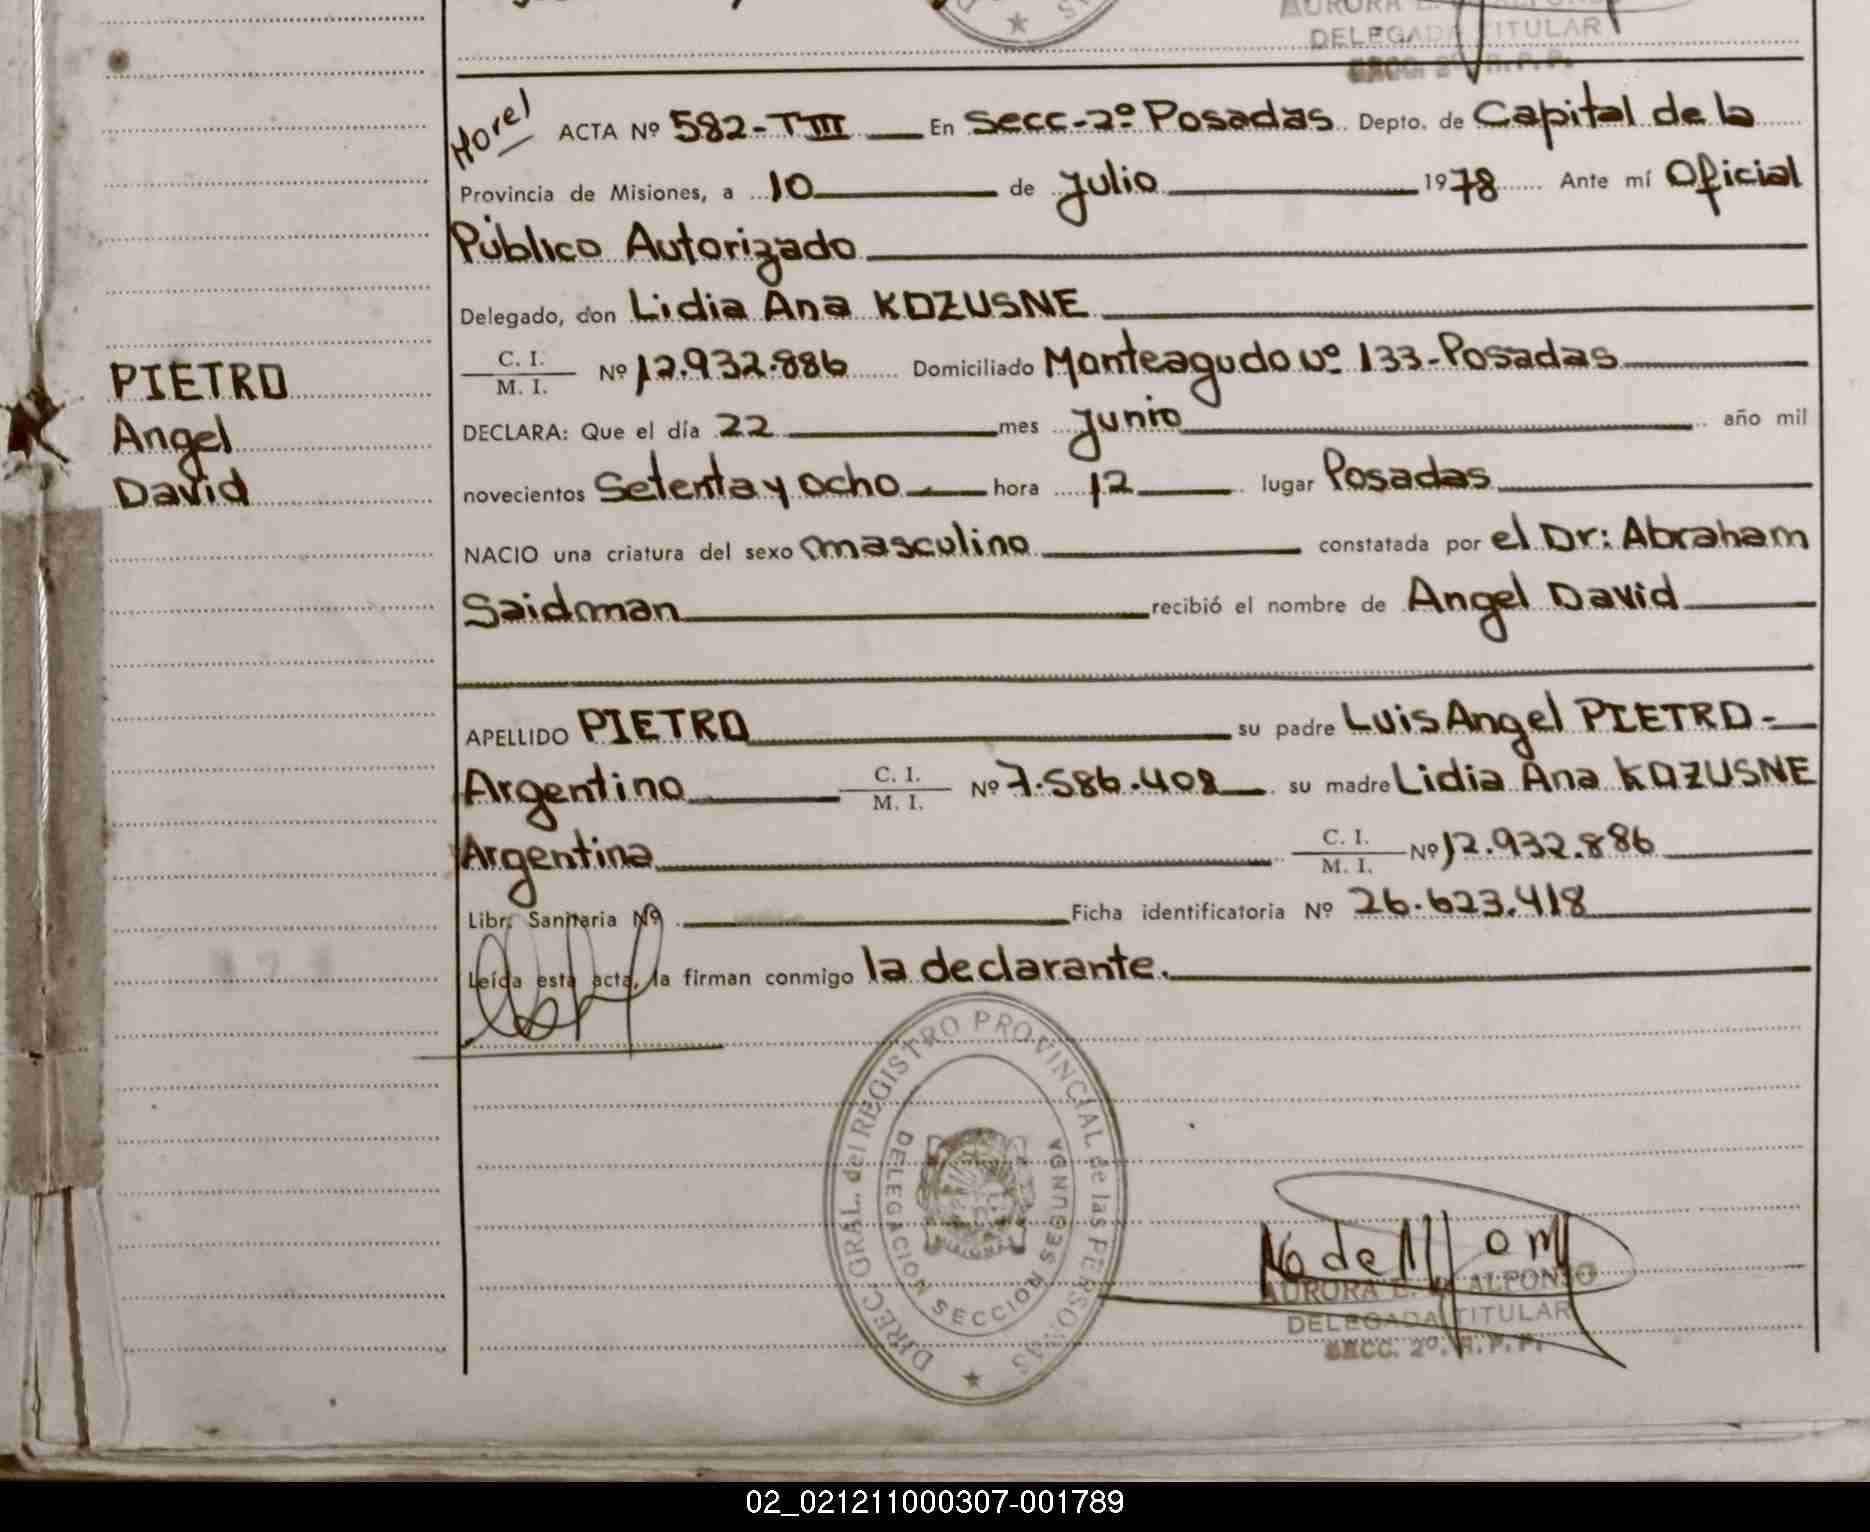 DELEGADA TITULAR
SECC. 2º. R. P. P.
Morel ACTA Nº 582-TIII En Secc-2º Posadas Depto. de Capital de la
Provincia de Misiones, a 10 de Julio 1978 Ante mí Oficial
Público Autorizado
Delegado, don Lidia Ana KOZUSNE
C. I. / M. I. Nº 12.932.886 Domiciliado Monteagudo Nº 133-Posadas
PIETRO
Angel
David
DECLARA: Que el día 22 mes Junio año mil
novecientos Setenta y ocho hora 12 lugar Posadas
NACIO una criatura del sexo masculino constatada por el Dr: Abraham
Saidman recibió el nombre de Angel David
APELLIDO PIETRO su padre Luis Angel PIETRO-
Argentino C. I. / M. I. Nº 7.586.408 su madre Lidia Ana KOZUSNE
Argentina C. I. / M. I. Nº 12.932.886
Libr. Sanitaria Nº Ficha identificatoria Nº 26.623.418
Leída esta acta, la firman conmigo la declarante.
DIREC. GRAL. del REGISTRO PROVINCIAL de las PERSONAS
DELEGACION SECCION SEGUNDA
AURORA E. de ALFONSO
DELEGADA TITULAR
SECC. 2º. R. P. P.
02_021211000307-001789